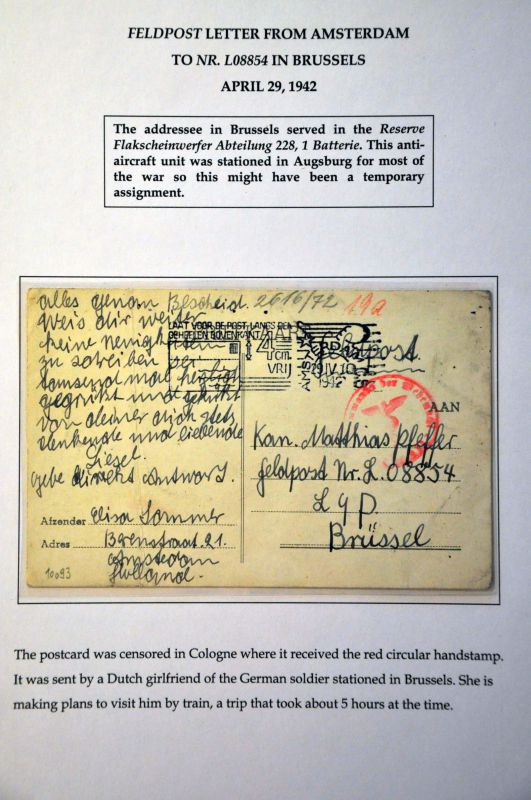 FELDPOST LETTER FROM AMSTERDAM
TO NR. L08854 IN BRUSSELS
APRIL 29, 1942
The addressee in Brussels served in the Reserve
Flakscheinwerfer Abteilung 228, 1 Batterie. This anti-
aircraft unit was stationed in Augsburg for most of
the war so this might have been a temporary
assignment.
alles genau Bescheid.
2616/72
19a
weis dir weiter
keine neuigkeiten
zu schreiben
tausendmal herzlich
gegrüßt und geküßt
von deiner dich stets
denkende und liebende
Liesel.
gebe direkt Antwort.
LAAT VOOR DE POST, LANGS DEN
Feldpost
VRIJ
29 IV 10
1942
AAN
Kan. Matthias Pfeffer
Feldpost Nr. L. 08854
L g P.
Brüssel
Afzender Elisa Sommer
Adres Berenstraat. 21.
Amsterdam
Holland.
10093
The postcard was censored in Cologne where it received the red circular handstamp.
It was sent by a Dutch girlfriend of the German soldier stationed in Brussels. She is
making plans to visit him by train, a trip that took about 5 hours at the time.